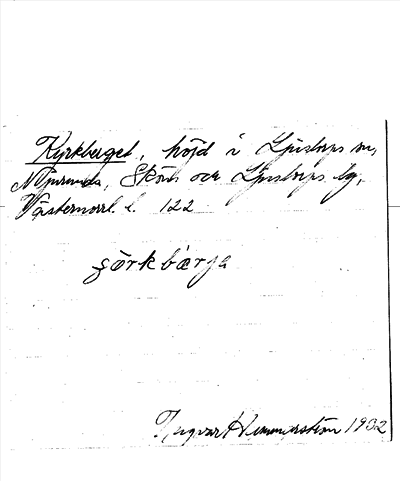 Kyrkberget, höjd i Ljustorps sn,
Njurunda, Sköns och Ljustorps tg,
Västernorrl. l. 122
şörkbærja
Ingvar Hammarström 1932